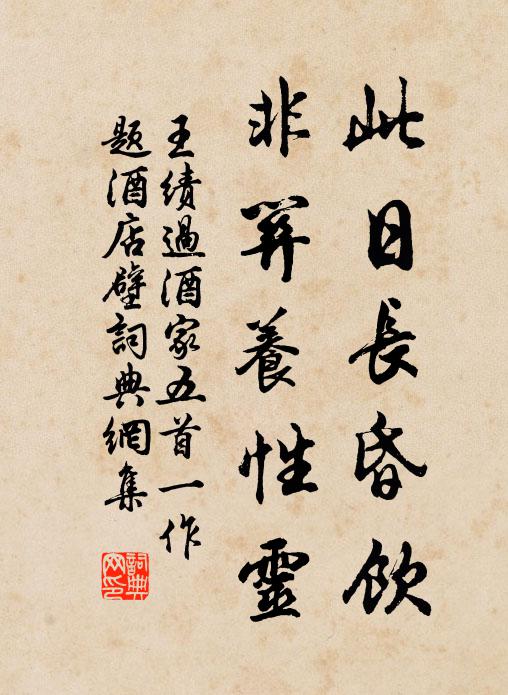 此日長昏飲
非關養性靈
王績過酒家五首一作
題酒店壁詞典網集
詞典
网印